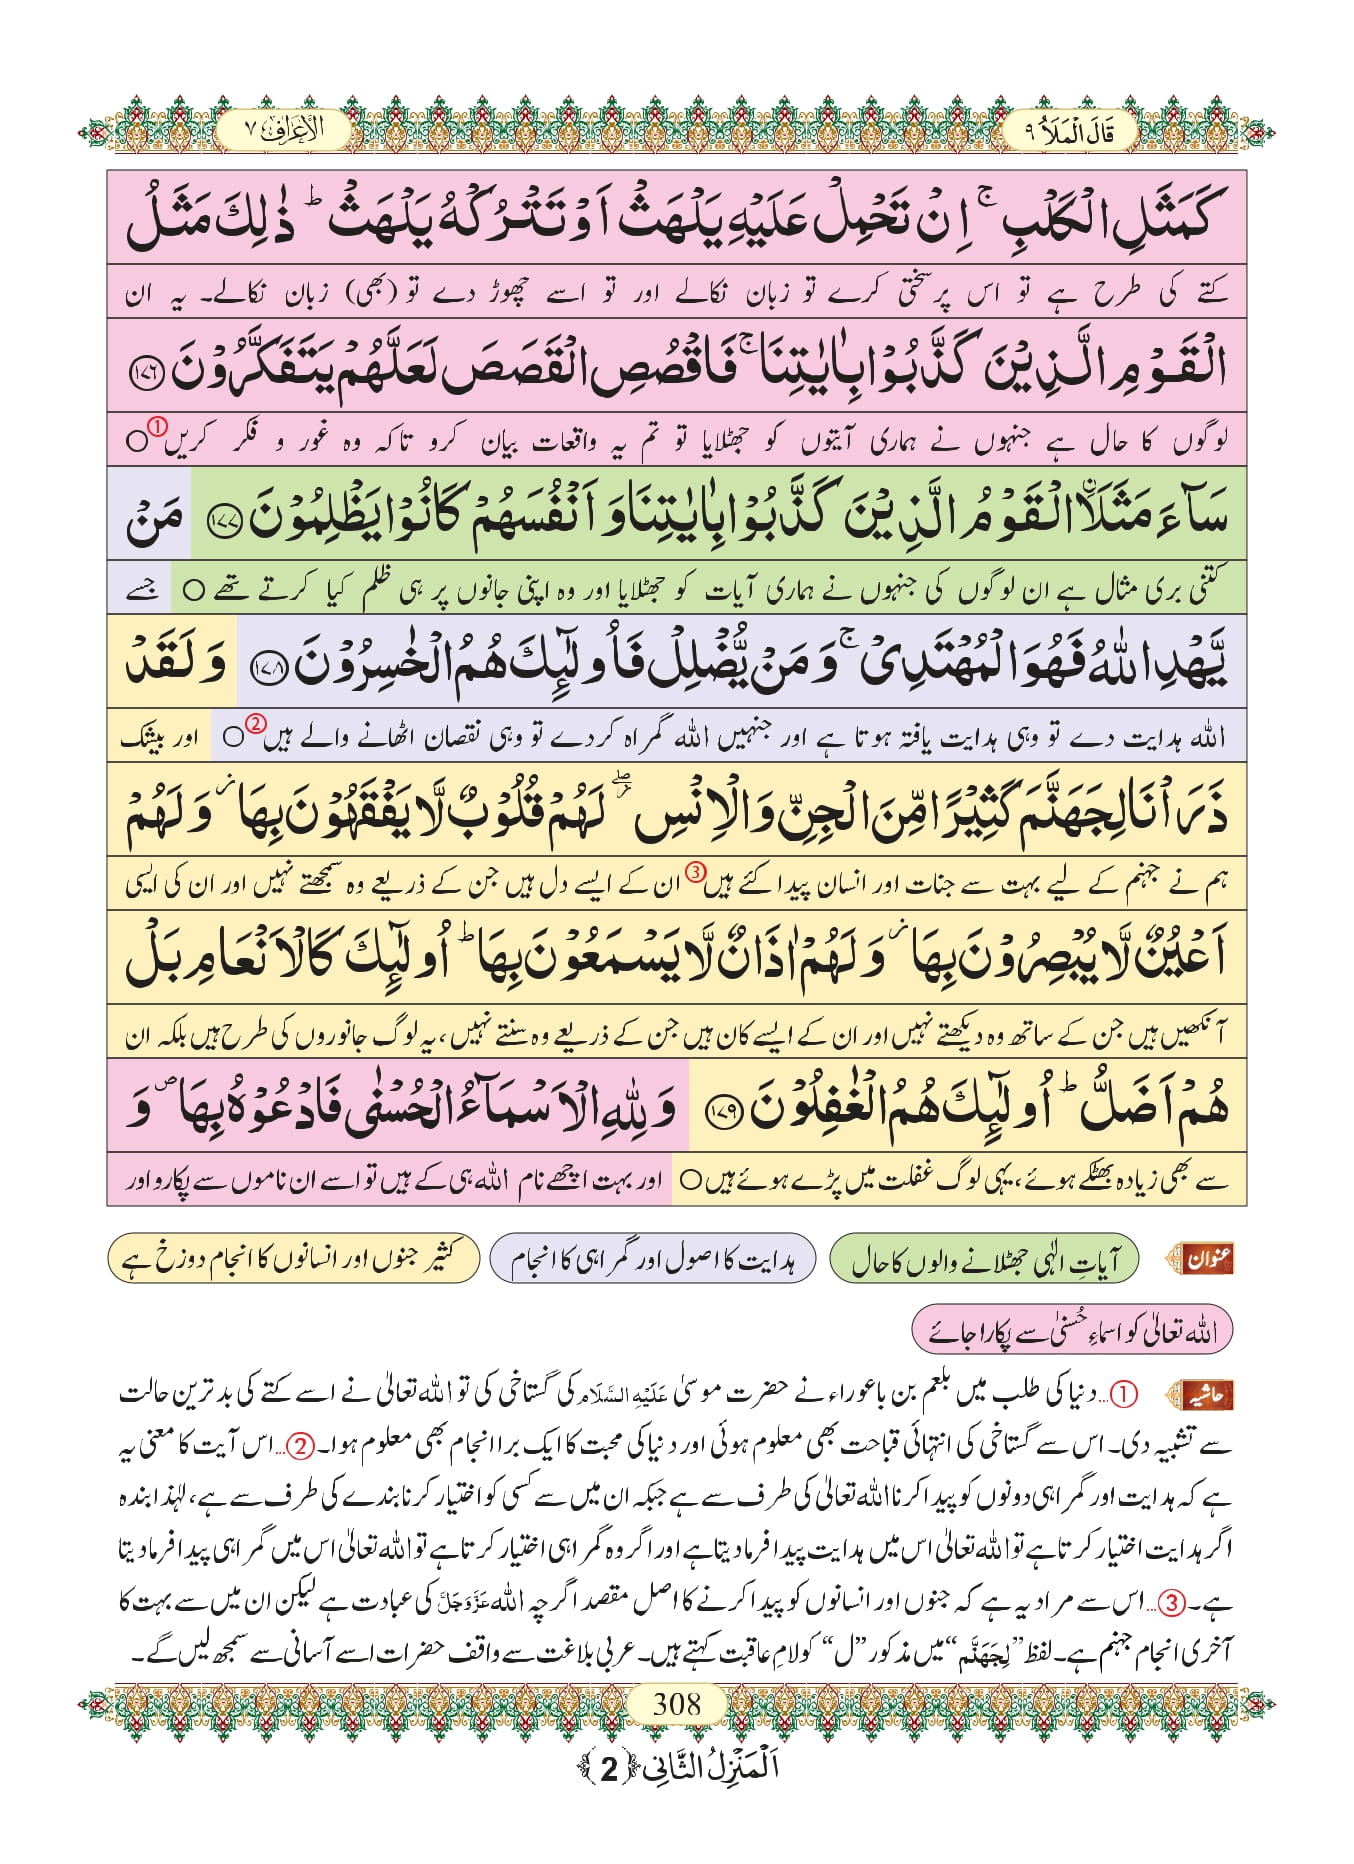 قَالَ الْمَلَاُ ۹
الاعراف ۷
كَمَثَلِ الْكَلْبِ ۚ اِنْ تَحْمِلْ عَلَیْهِ یَلْهَثْ اَوْ تَتْرُكْهُ یَلْهَثْ ؕ ذٰلِكَ مَثَلُ
کتے کی طرح ہے تو اس پر سختی کرے تو زبان نکالے اور تو اسے چھوڑ دے تو (بھی) زبان نکالے۔ یہ ان
الْقَوْمِ الَّذِیْنَ كَذَّبُوْا بِاٰیٰتِنَا ۚ فَاقْصُصِ الْقَصَصَ لَعَلَّهُمْ یَتَفَكَّرُوْنَ ﴿۱۷۶﴾
لوگوں کا حال ہے جنہوں نے ہماری آیتوں کو جھٹلایا تو تم یہ واقعات بیان کرو تاکہ وہ غور و فکر کریں ① ○
سَآءَ مَثَلَاۨ الْقَوْمُ الَّذِیْنَ كَذَّبُوْا بِاٰیٰتِنَا وَ اَنْفُسَهُمْ كَانُوْا یَظْلِمُوْنَ ﴿۱۷۷﴾ مَنْ
کتنی بری مثال ہے ان لوگوں کی جنہوں نے ہماری آیات کو جھٹلایا اور وہ اپنی جانوں پر ہی ظلم کیا کرتے تھے ○ جسے
یَّهْدِ اللّٰهُ فَهُوَ الْمُهْتَدِیْ ۚ وَ مَنْ یُّضْلِلْ فَاُولٰٓىٕكَ هُمُ الْخٰسِرُوْنَ ﴿۱۷۸﴾ وَ لَقَدْ
اللہ ہدایت دے تو وہی ہدایت یافتہ ہوتا ہے اور جنہیں اللہ گمراہ کردے تو وہی نقصان اٹھانے والے ہیں ② ○ اور بیشک
ذَرَاْنَا لِجَهَنَّمَ كَثِیْرًا مِّنَ الْجِنِّ وَ الْاِنْسِ ۖ٘ لَهُمْ قُلُوْبٌ لَّا یَفْقَهُوْنَ بِهَا ؗ وَ لَهُمْ
ہم نے جہنم کے لیے بہت سے جنات اور انسان پیدا کئے ہیں ③ ان کے ایسے دل ہیں جن کے ذریعے وہ سمجھتے نہیں اور ان کی ایسی
اَعْیُنٌ لَّا یُبْصِرُوْنَ بِهَا ؗ وَ لَهُمْ اٰذَانٌ لَّا یَسْمَعُوْنَ بِهَا ؕ اُولٰٓىٕكَ كَالْاَنْعَامِ بَلْ
آنکھیں ہیں جن کے ساتھ وہ دیکھتے نہیں اور ان کے ایسے کان ہیں جن کے ذریعے وہ سنتے نہیں، یہ لوگ جانوروں کی طرح ہیں بلکہ ان
هُمْ اَضَلُّ ؕ اُولٰٓىٕكَ هُمُ الْغٰفِلُوْنَ ﴿۱۷۹﴾ وَ لِلّٰهِ الْاَسْمَآءُ الْحُسْنٰى فَادْعُوْهُ بِهَا ۪ وَ
سے بھی زیادہ بھٹکے ہوئے، یہی لوگ غفلت میں پڑے ہوئے ہیں ○ اور بہت اچھے نام اللہ ہی کے ہیں تو اسے ان ناموں سے پکارو اور
عنوان آیاتِ الٰہی جھٹلانے والوں کا حال ہدایت کا اصول اور گمراہی کا انجام کثیر جنوں اور انسانوں کا انجام دوزخ ہے
اللہ تعالیٰ کو اسماءِ حُسنیٰ سے پکارا جائے
حاشیہ ①...دنیا کی طلب میں بلعم بن باعوراء نے حضرت موسیٰ عَلَیْهِ السَّلَام کی گستاخی کی تو اللہ تعالیٰ نے اسے کتے کی بدترین حالت
سے تشبیہ دی۔ اس سے گستاخی کی انتہائی قباحت بھی معلوم ہوئی اور دنیا کی محبت کا ایک برا انجام بھی معلوم ہوا۔ ②...اس آیت کا معنی یہ
ہے کہ ہدایت اور گمراہی دونوں کو پیدا کرنا اللہ تعالیٰ کی طرف سے ہے جبکہ ان میں سے کسی کو اختیار کرنا بندے کی طرف سے ہے، لہٰذا بندہ
اگر ہدایت اختیار کرتا ہے تو اللہ تعالیٰ اس میں ہدایت پیدا فرما دیتا ہے اور اگر وہ گمراہی اختیار کرتا ہے تو اللہ تعالیٰ اس میں گمراہی پیدا فرما دیتا
ہے۔ ③...اس سے مراد یہ ہے کہ جنوں اور انسانوں کو پیدا کرنے کا اصل مقصد اگرچہ اللہ عَزَّوَجَلَّ کی عبادت ہے لیکن ان میں سے بہت کا
آخری انجام جہنم ہے۔ لفظ ”لِجَهَنَّم“ میں مذکور ”ل“ کو لامِ عاقبت کہتے ہیں۔ عربی بلاغت سے واقف حضرات اسے آسانی سے سمجھ لیں گے۔
308
اَلْمَنْزِلُ الثَّانِی ﴿2﴾